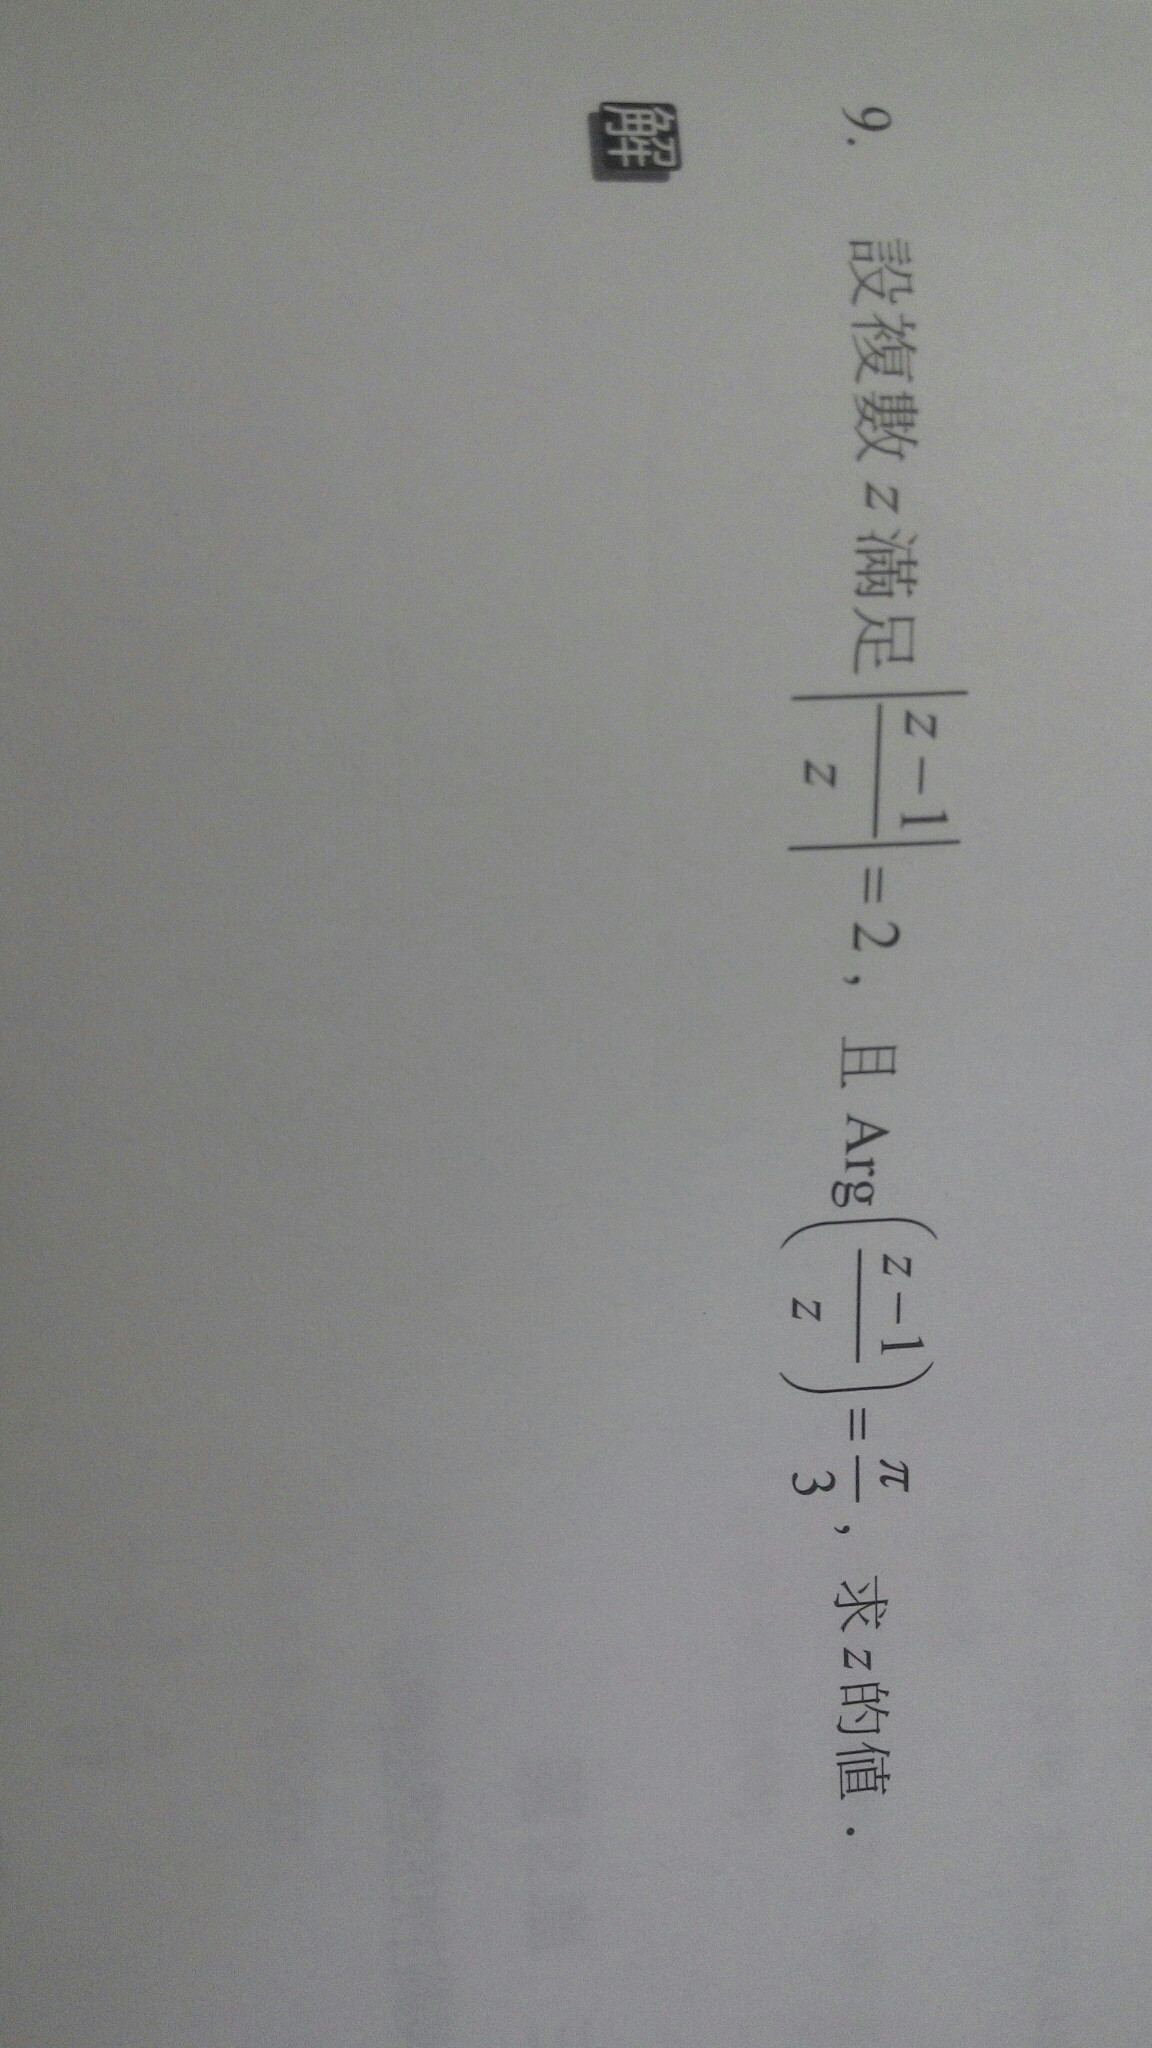 9. 設複數 z 滿足 |(z−1)/z|=2，且 Arg((z−1)/z)=π/3，求 z 的值．
解